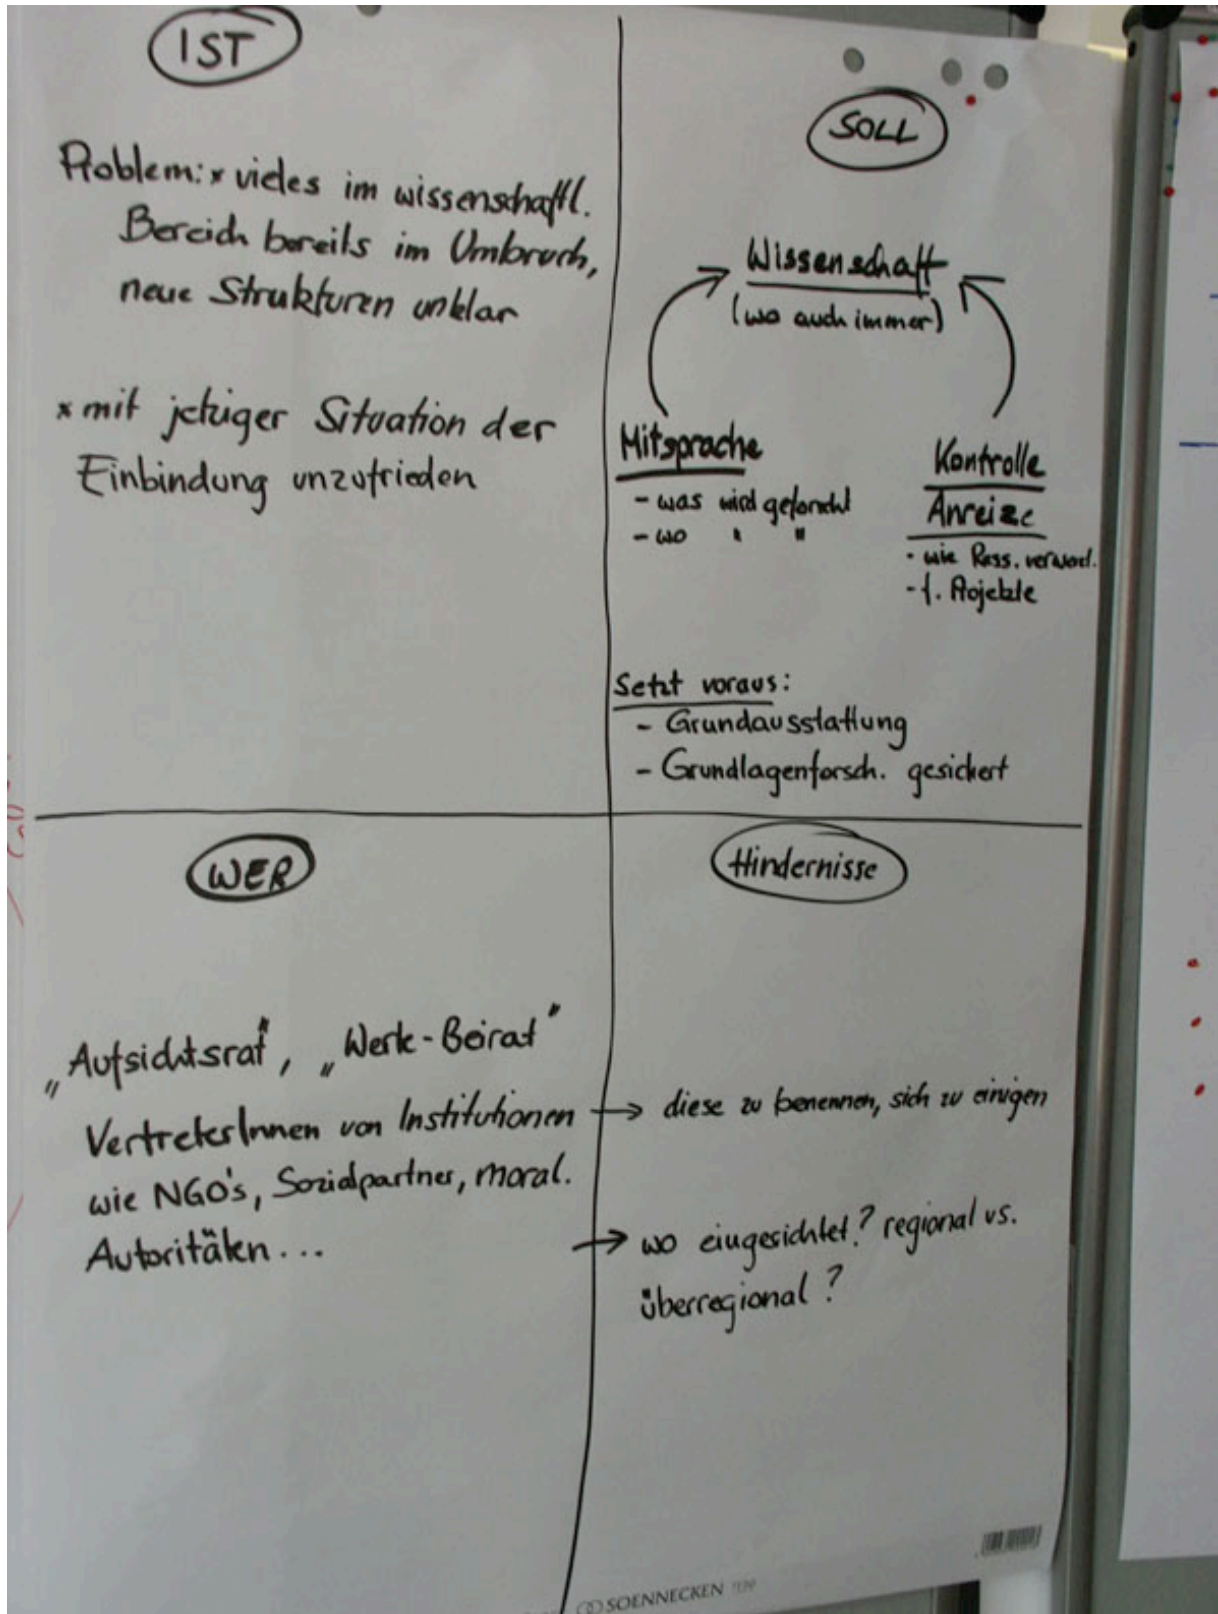 IST
Problem: x vieles im wissenschaftl.
Bereich bereits im Umbruch,
neue Strukturen unklar
x mit jetziger Situation der
Einbindung unzufrieden
SOLL
Wissenschaft
(wo auch immer)
Mitsprache
- was wird geforscht
- wo " "
Kontrolle
Anreize
- wie Ress. verwend.
- f. Projekte
Setzt voraus:
- Grundausstattung
- Grundlagenforsch. gesichert
WER
„Aufsichtsrat", „Werte-Beirat"
VertreterInnen von Institutionen
wie NGO's, Sozialpartner, moral.
Autoritäten...
Hindernisse
→ diese zu benennen, sich zu einigen
→ wo eingerichtet? regional vs.
überregional?
SOENNECKEN